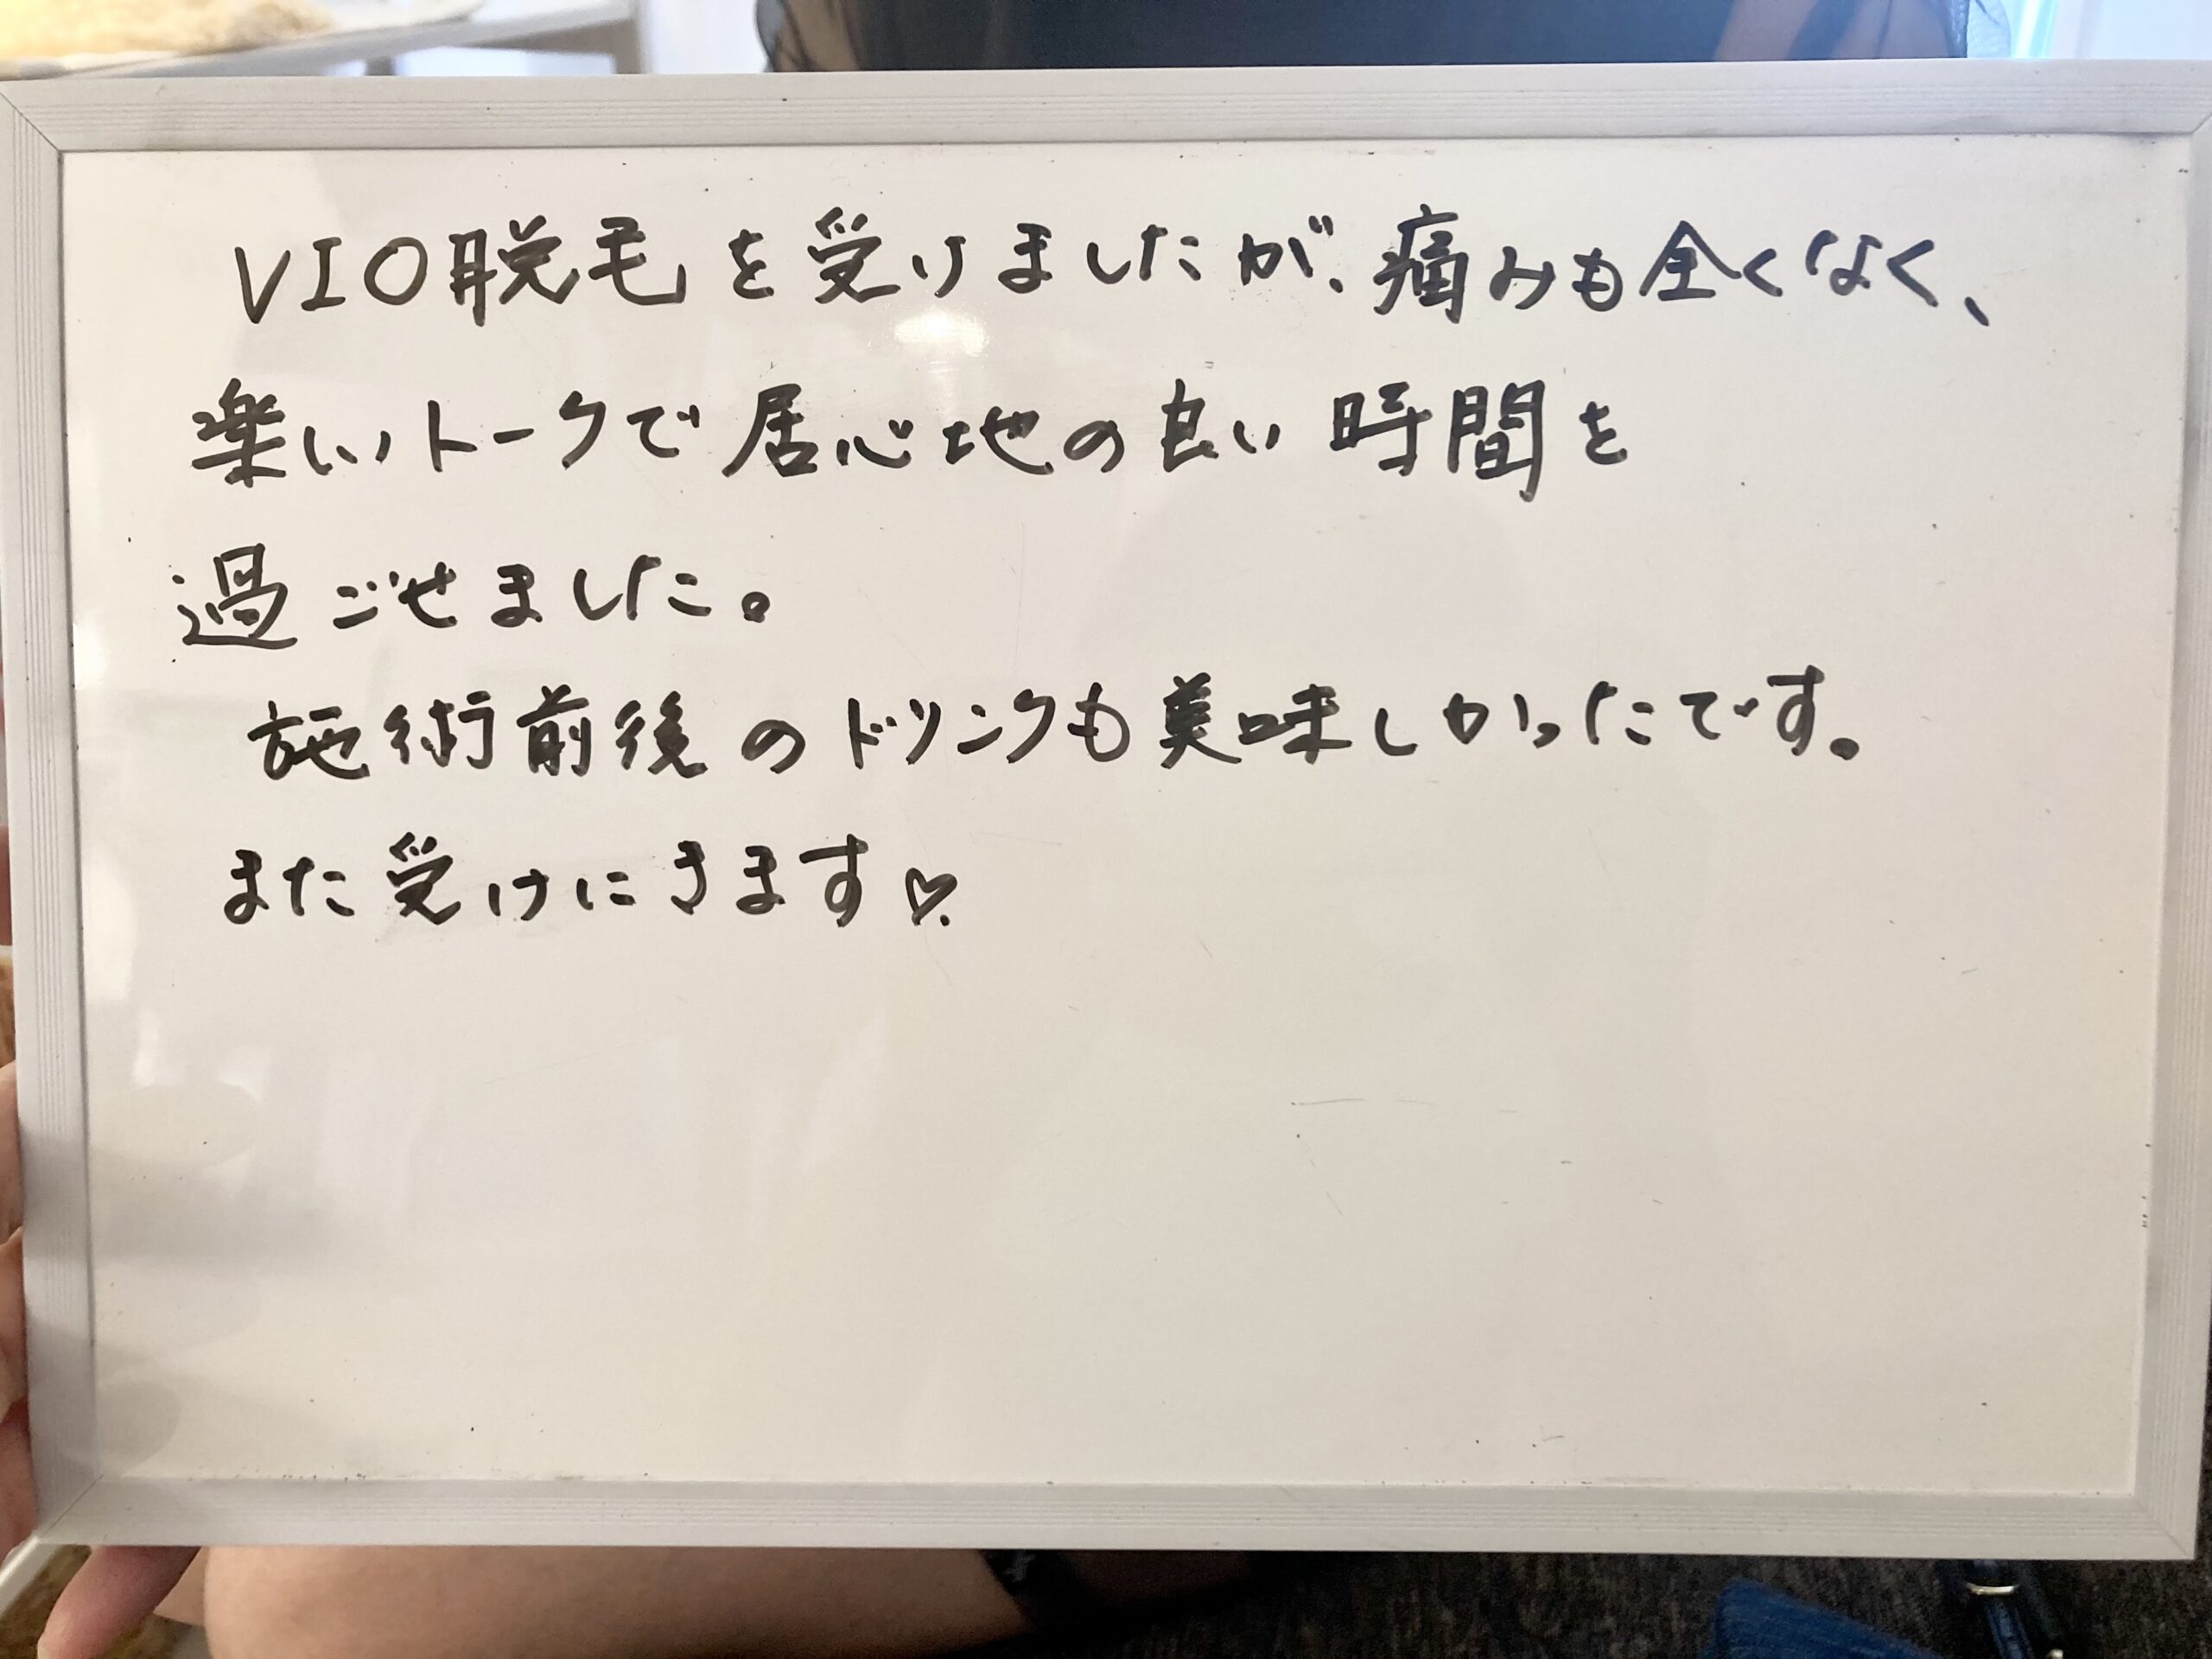 VIO脱毛を受けましたが、痛みも全くなく、
楽しいトークで居心地の良い時間を
過ごせました。
施術前後のドリンクも美味しかったです。
また受けにきます♡